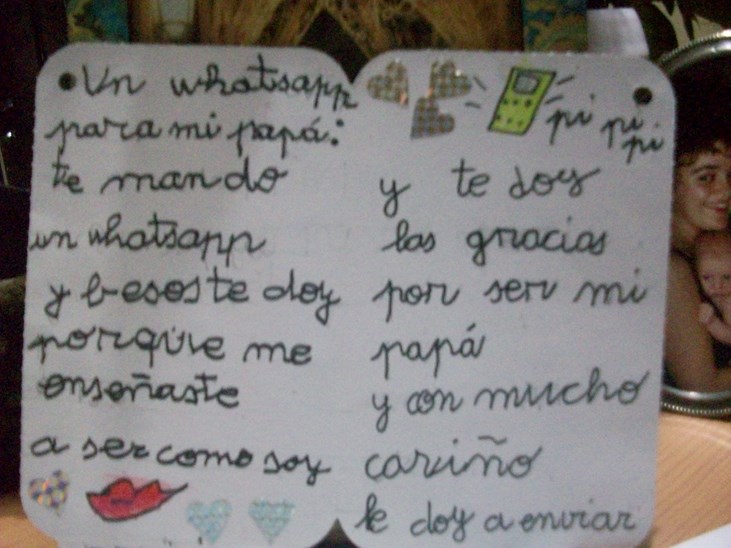 Un whatsapp
para mi papá:
te mando
un whatsapp
y besos te doy
porque me
enseñaste
a ser como soy
pi pi pi
y te doy
las gracias
por ser mi
papá
y con mucho
cariño
le doy a enviar